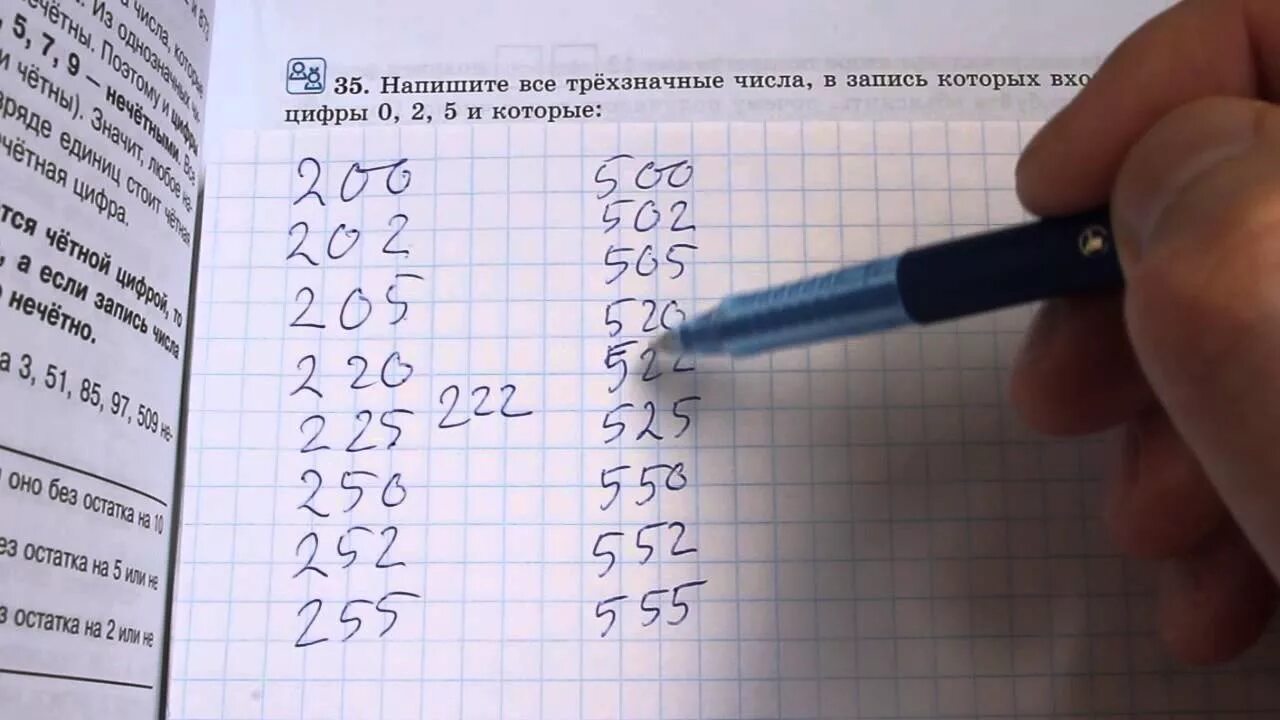 числа, которые
чётны. Из однозначных чи-
5, 7, 9 – нечётными. Все
и чётны). Значит, любое на-
нечётны. Поэтому и цифры
ряде единиц стоит чётная
чётная цифра.
тся чётной цифрой, то
, а если запись числа
нечётно.
а 3, 51, 85, 97, 509 не-
оно без остатка на 10
ез остатка на 5 или не
з остатка на 2 или не
35. Напишите все трёхзначные числа, в запись которых вхо
цифры 0, 2, 5 и которые:
200
202
205
220
225 222
250
252
255
500
502
505
520
522
525
550
552
555